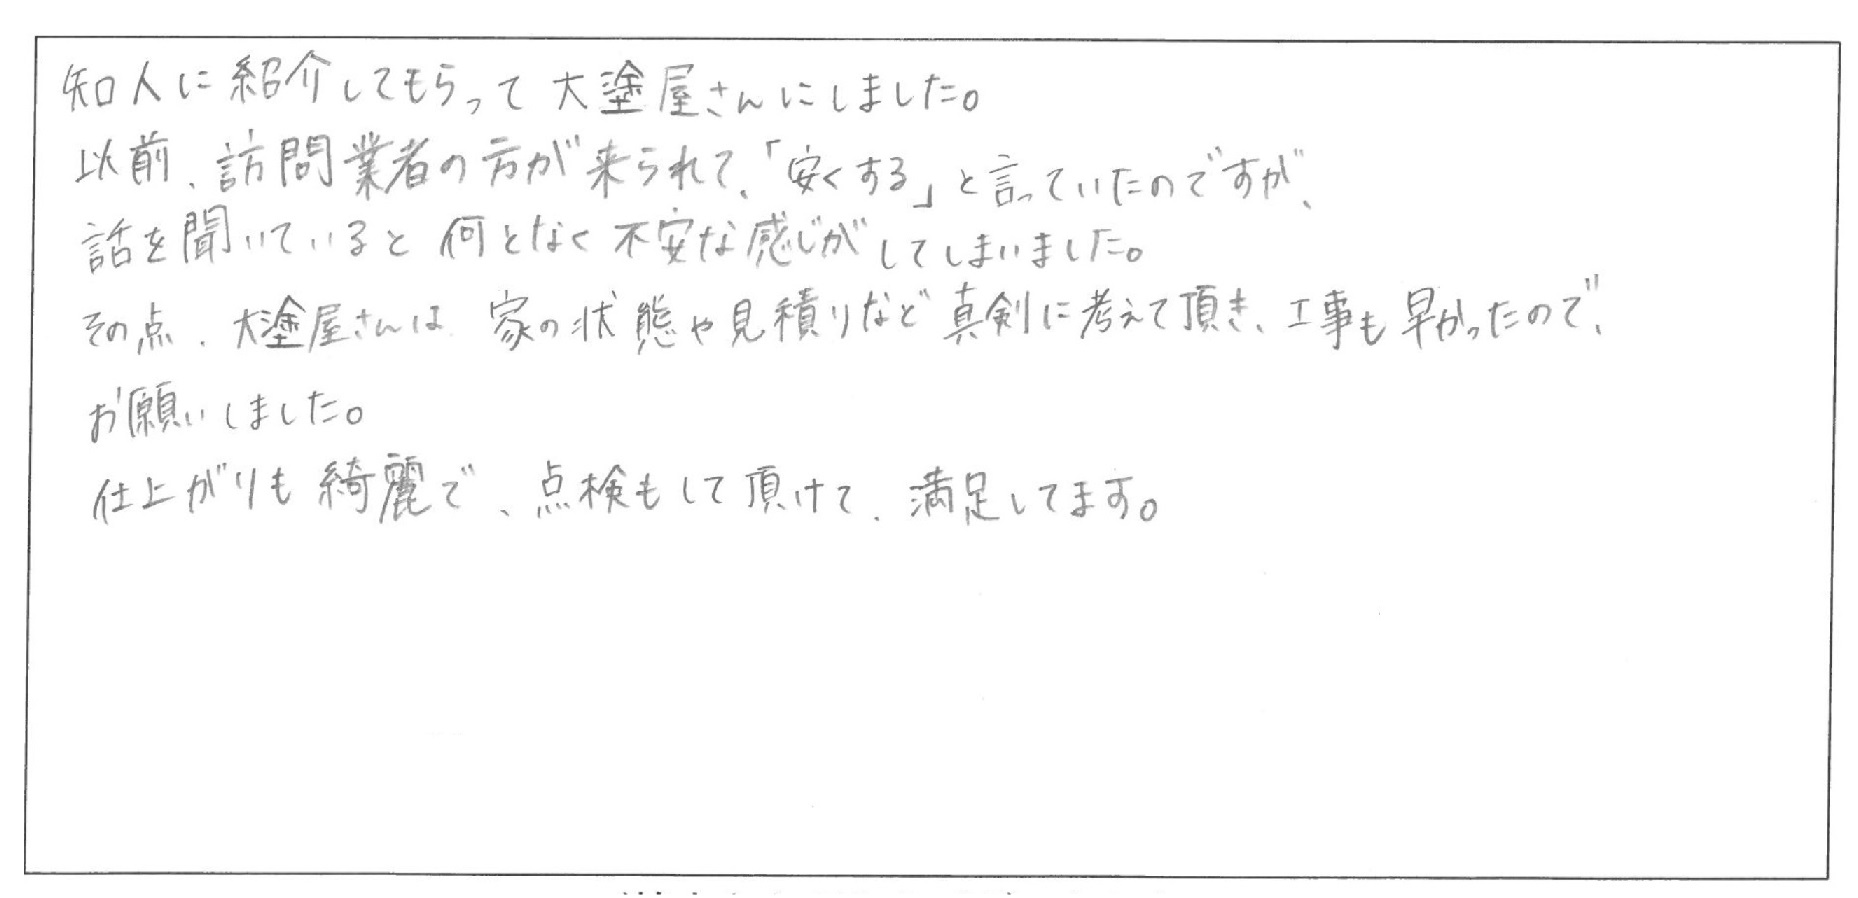 知人に紹介してもらって大塗屋さんにしました。
以前、訪問業者の方が来られて、「安くする」と言っていたのですが、
話を聞いていると何となく不安な感じがしてしまいました。
その点、大塗屋さんは、家の状態や見積りなど真剣に考えて頂き、工事も早かったので、
お願いしました。
仕上がりも綺麗で、点検もして頂けて、満足してます。